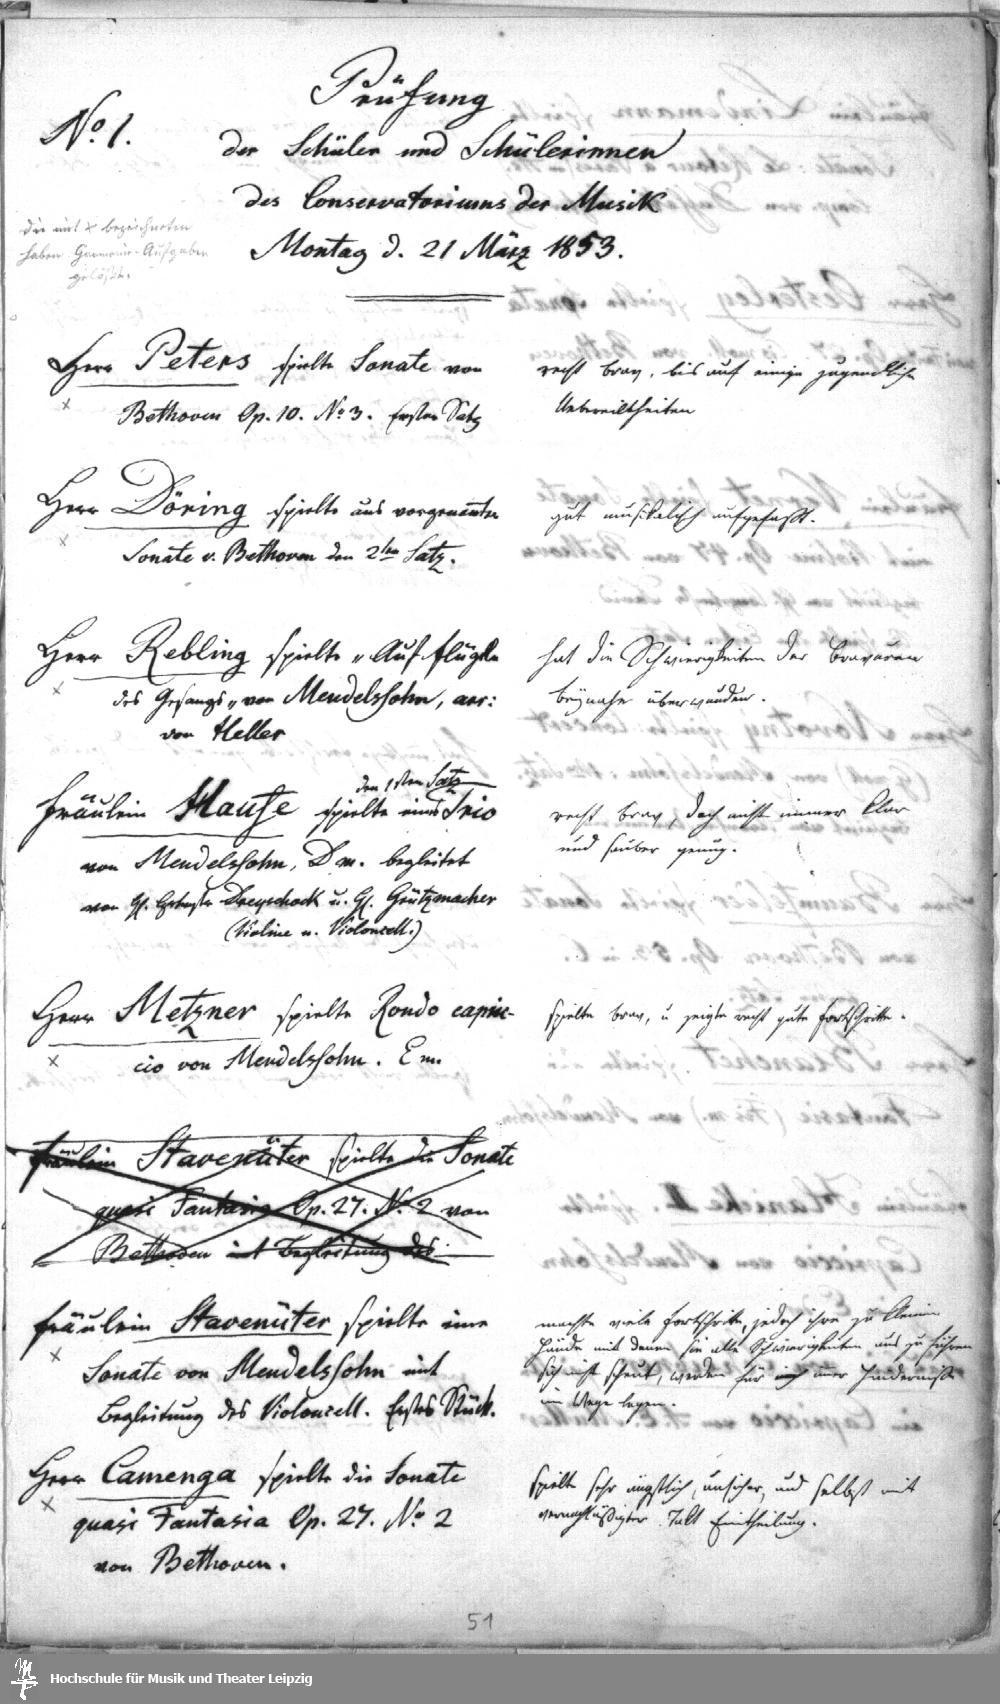 No. 1.
Prüfung
der Schüler und Schülerinnen
des Conservatoriums der Musik
Montag d. 21 März 1853.
die mit x bezeichneten
haben Harmonie-Aufgaben
gelößt.
Herr Peters spielte Sonate von
x
Bethoven Op. 10. No 3. Erster Satz
recht brav, bis auf einige jugendliche
Uebereiltheiten
Herr Döring spielte aus vorgenannter
x
Sonate v. Bethoven den 2ten Satz.
gut musikalisch aufgefaßt.
Herr Rebling spielte „Auf Flügeln
x
des Gesangs„ von Mendelssohn, arr:
von Heller
hat die Schwierigkeiten der Bravouren
beynahe überwunden.
den 1sten Satz
Fräulein Hauße spielte eines Trio
von Mendelssohn, D m. begleitet
von H. Dreyschock u. H. Grützmacher
(Violine u. Violoncell.)
recht brav, doch nicht immer klar
und sauber genug.
Herr Metzner spielte Rondo capric-
x
cio von Mendelssohn. E m.
spielte brav, u zeigte recht gute Fortschritte.
Fräulein Stavenüter spielte die Sonate
quasi Fantasia Op. 27. No. 2 von
Bethoven mit Begleitung des
Fräulein Stavenüter spielte eine
x
Sonate von Mendelssohn mit
Begleitung des Violoncell. Erstes Stück.
machte viele Fortschritte, jedoch ihre zu kleinen
Hände mit denen sie alle Schwierigkeiten aus zu führen
sich nicht scheut, werden für immer Hinderniße
im Wege legen.
Herr Camenga spielte die Sonate
x
quasi Fantasia Op. 27. No 2
von Bethoven.
Spielte sehr ängstlich, unsicher, und selbst mit
vernachläßigter Takt Eintheilung.
51
Hochschule für Musik und Theater Leipzig